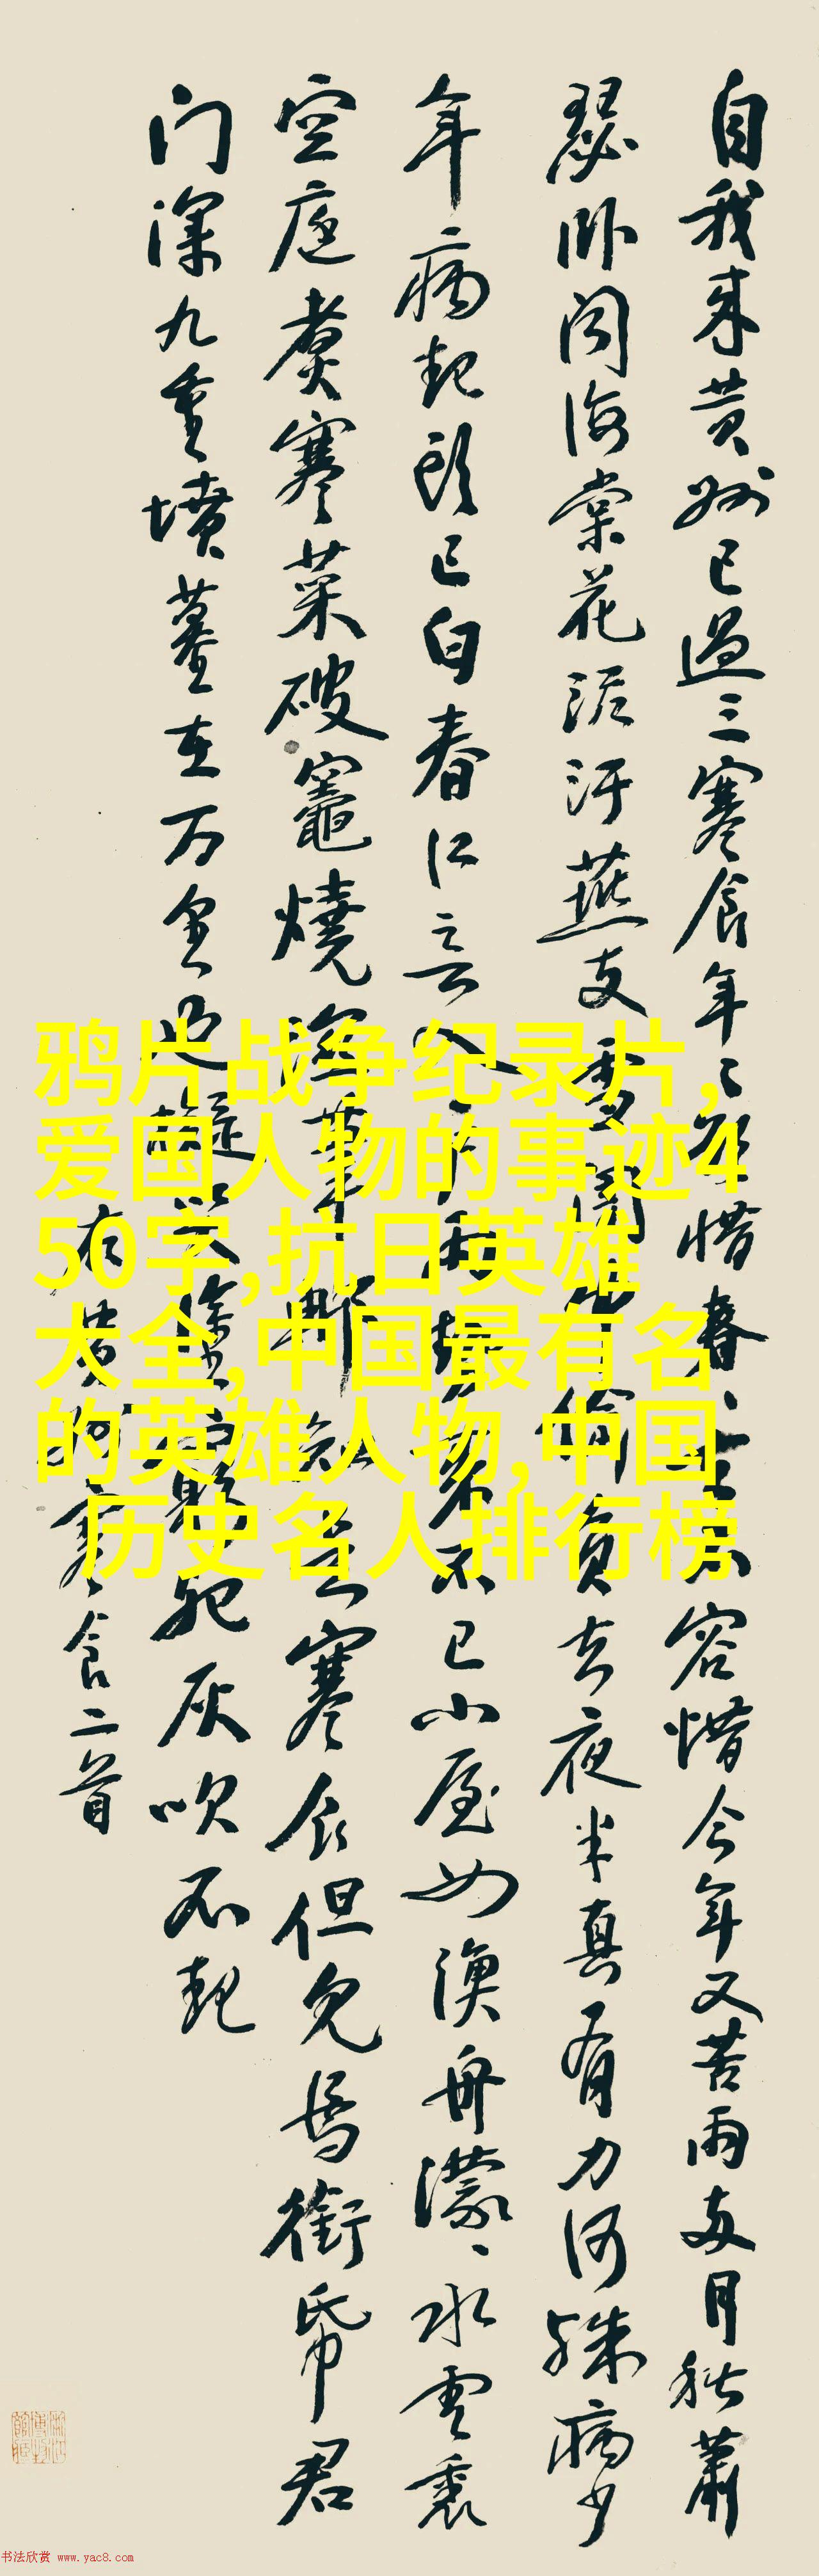 自我来黄州已過三寒食年〻欲惜春〻去不容惜今年又苦雨两月秋蕭
瑟卧闻海棠花泥汙燕支雪闇中偷負去夜半真有力何殊病少
年病起头已白春江欲入户雨势来不已小屋如渔舟濛〻水雲裏
空庖煮寒菜破竈燒湿苇那知是寒食但见烏銜帋君
门深九重墳墓在万里也擬哭塗窮死灰吹不起
右黄州寒食二首
鸦片战争纪录片,
爱国人物的事迹4
50字,抗日英雄
大全,中国最有名
的英雄人物,中国
历史名人排行榜
书法欣赏 www.yac8.com